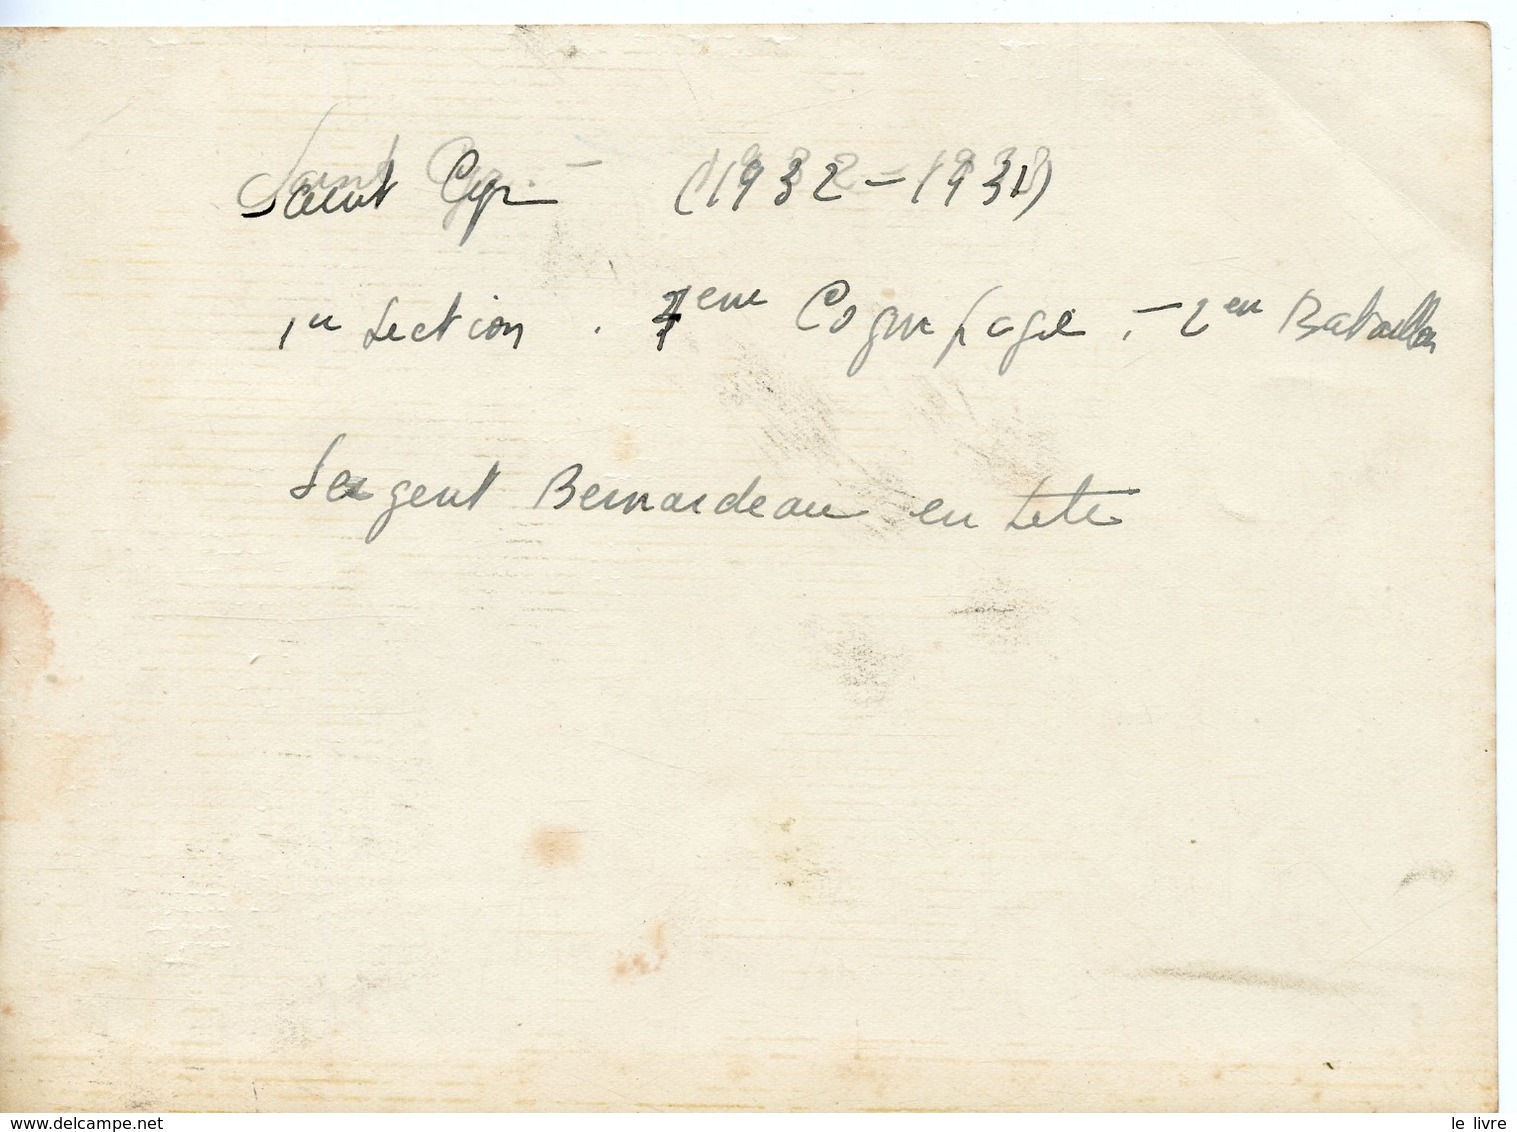 Saint Cyr – (1932 – 1933)
1re Section . 7eme Compagnie . – 2em Bataillon
Sergent Bernardeau en tete
le livre
www.delcampe.net